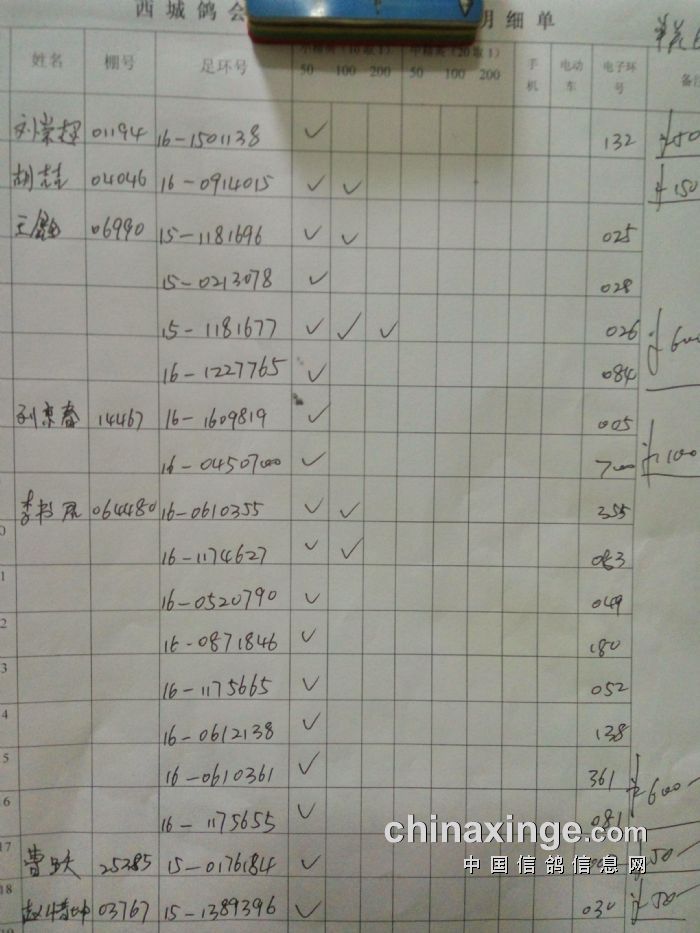 西城鸽会 明细单
姓名 棚号 足环号 小精英（10取1） 中精英（20取1） 手机 电动车 电子环号 备注
50 100 200 50 100 200
01194 16-1501138 ✓ 132
04046 16-0914015 ✓ ✓ 150
06990 15-1181696 ✓ ✓ 025
15-0213078 ✓ 028
15-1181677 ✓ ✓ ✓ 026
16-1227765 ✓ 084
刘京春 14467 16-1609819 ✓ 005
16-0450700 ✓ 100
064480 16-0610355 ✓ ✓ 355
16-1174627 ✓ ✓ 083
16-0520790 ✓ 049
16-0871846 ✓ 180
16-1175665 ✓ 052
16-0612138 ✓ 138
16-0610361 ✓ 361
16-1175655 ✓ 081 600
17 25285 15-0176184 ✓ 50
18 03767 15-1389396 ✓ 030 50
chinaxinge.com
中国信鸽信息网